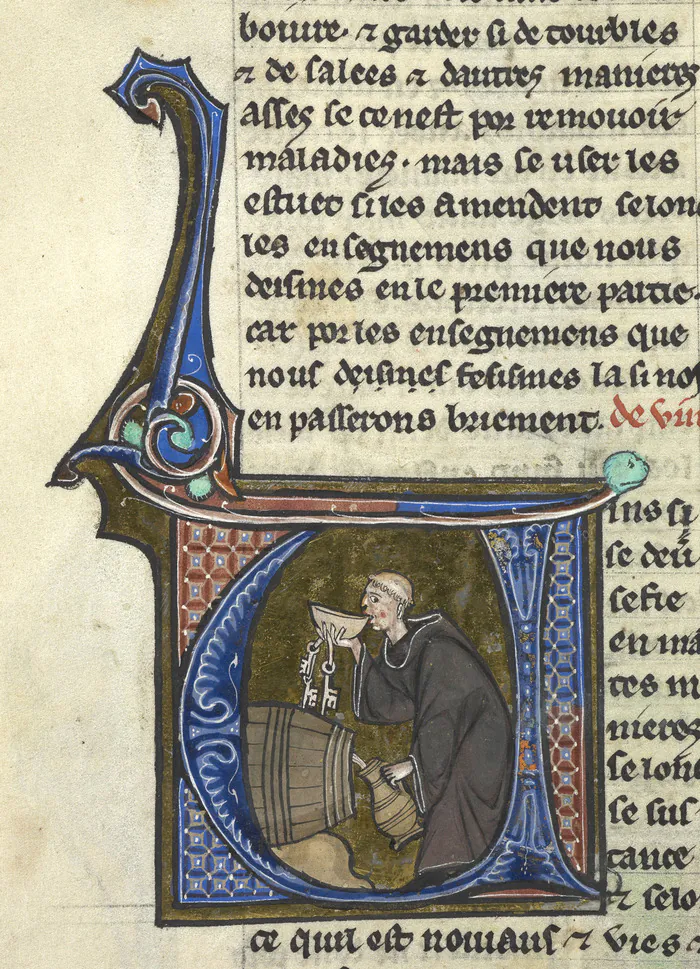 boiure · ⁊ garder si de tourbles
⁊ de salees ⁊ dautres manieres
asses se ce nest por remouoir
maladies · mais se user les
estuet si les amendent selon
les ensegnemens que nous
deismes en le premiere partie ·
car por les ensegnemens que
nous deismes fesismes la si no
en passerons briement . de vin
ins si
se deu
sefie
en ma
tes m
nieres
se lonc
se sus
tance
⁊ selo
ce quil est nouiaus ⁊ vies ⁊